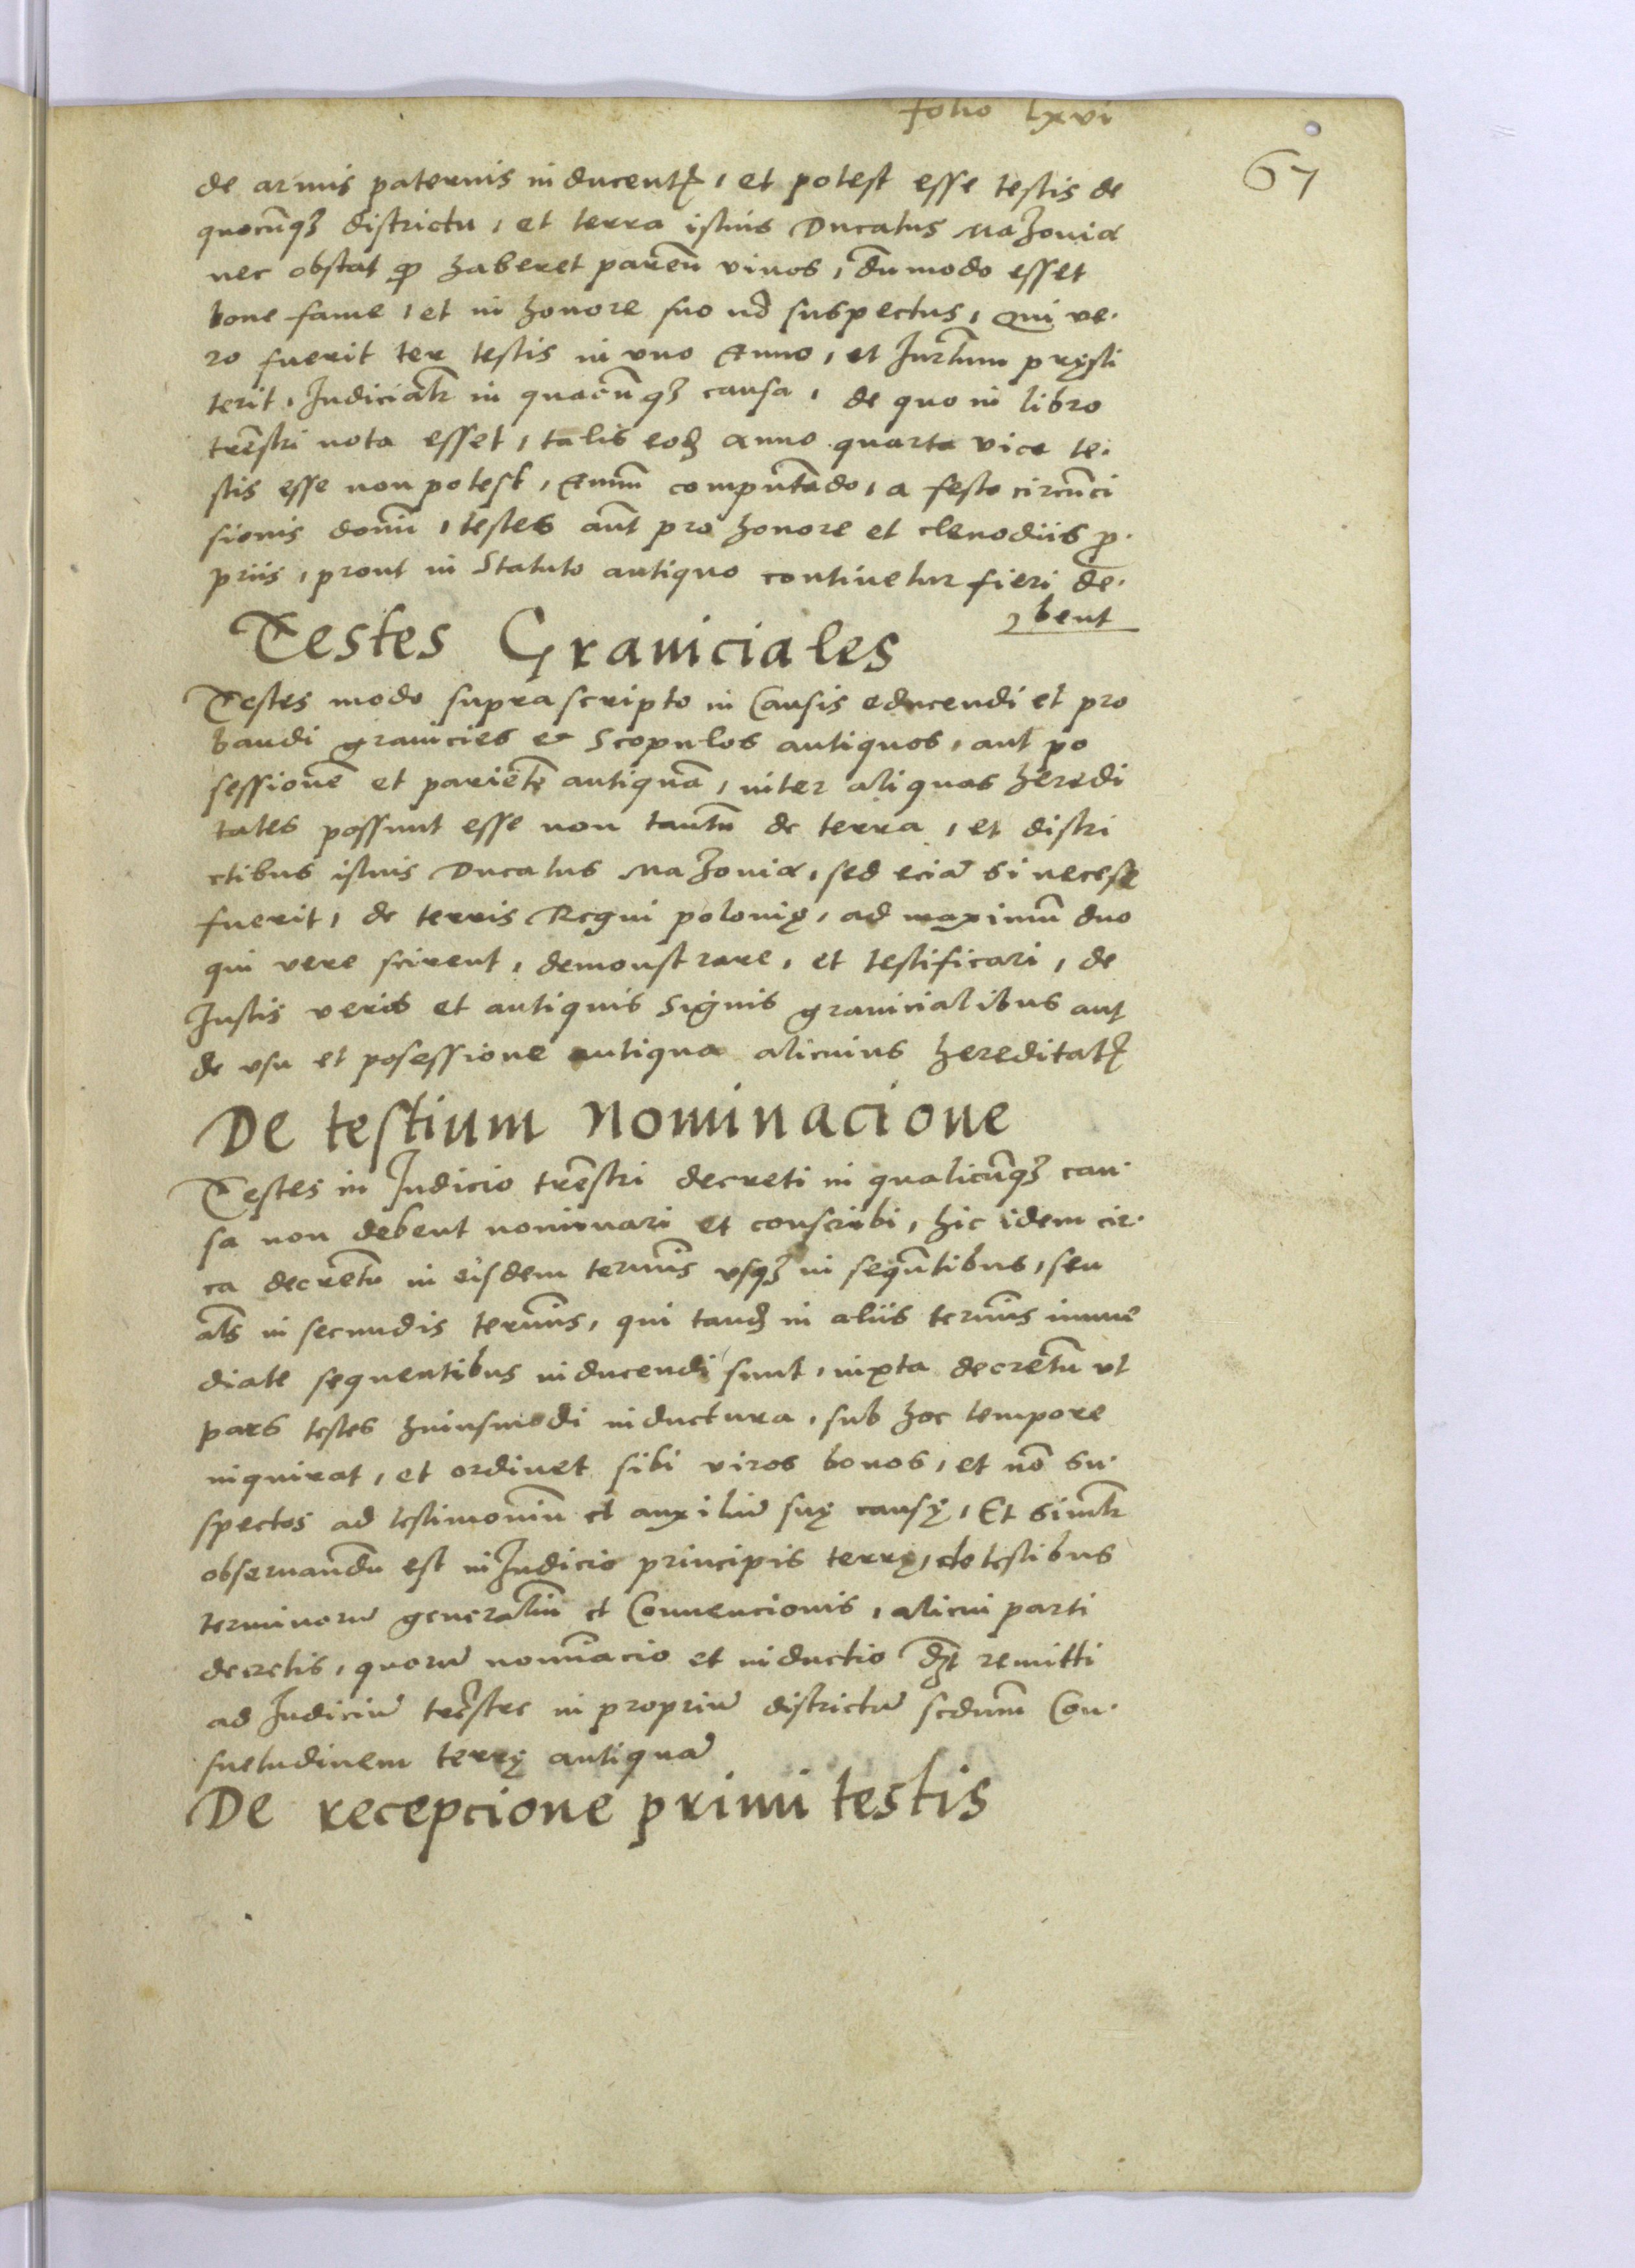 folio lxvi
67
de armis paternis inducentꝭ, et potest esse testis de
quocūqꝫ districtu, et terra istius Ducatus Mazouiæ
nec obstat ꝙ haberet parētē viuos, dūmodo esset
bone fame, et in honore suo nō suspectus, Qui ve-
ro fuerit ter testis in vno Anno, et Jurtūm pręsti
terit, Judicialr̄ in quacūqꝫ causa, de quo in libro
trēstri nota esset, talis eodꝫ anno quarta vice te-
stis esse non potest, Annū computādo, a festo circūci
sionis domī, testes aūt pro honore et clenodiis ꝓ-
priis, prout in Statuto antiquo continetur fieri de-
bent
Testes Graniciales
Testes modo suprascripto in Causis educendi et pro
bandi granicies et Scopulos antiquos, aut po
sessionē et pariētē antiquā, inter aliquas heredi
tates possunt esse non tantū de terra, et distri
ctibus istius Ducatus Mazouiæ, sed eciā si necesse
fuerit, de terris Regni polonię, ad maximū duo
qui vere scirent, demonstrare, et testificari, de
Justis veris et antiquis Signis granicialibus aut
de vsu et posessione antiqua alicuius hereditatꝭ
De testium nominacione
Testes in Judicio trēstri decreti in qualicūqꝫ cau-
sa non debent nominari et conscribi, hic idem cir-
ca decretū in eisdem termīs vsqꝫ in sequētibus, seu
als̄ in secundis termīs, qui tandꝫ in aliis termīs imme
diate sequentibus inducendi sunt, iuxta decretū vt
pars testes huiusmodi inductura, sub hoc tempore
inquirat, et ordinet sibi viros bonos, et nō su-
spectos ad testimoniū et auxiliū suę causę, Et similr̄
obseruandū est in Judicio principis terrę, de testibus
terminorū generaliū et Conuencionis, alicui parti
decretis, quorū nomīacio et inductio dꝫt remitti
ad Judiciū terrestre in propriū districtū scdum̄ Con-
suetudinem terrę antiquā
De recepcione primi testis